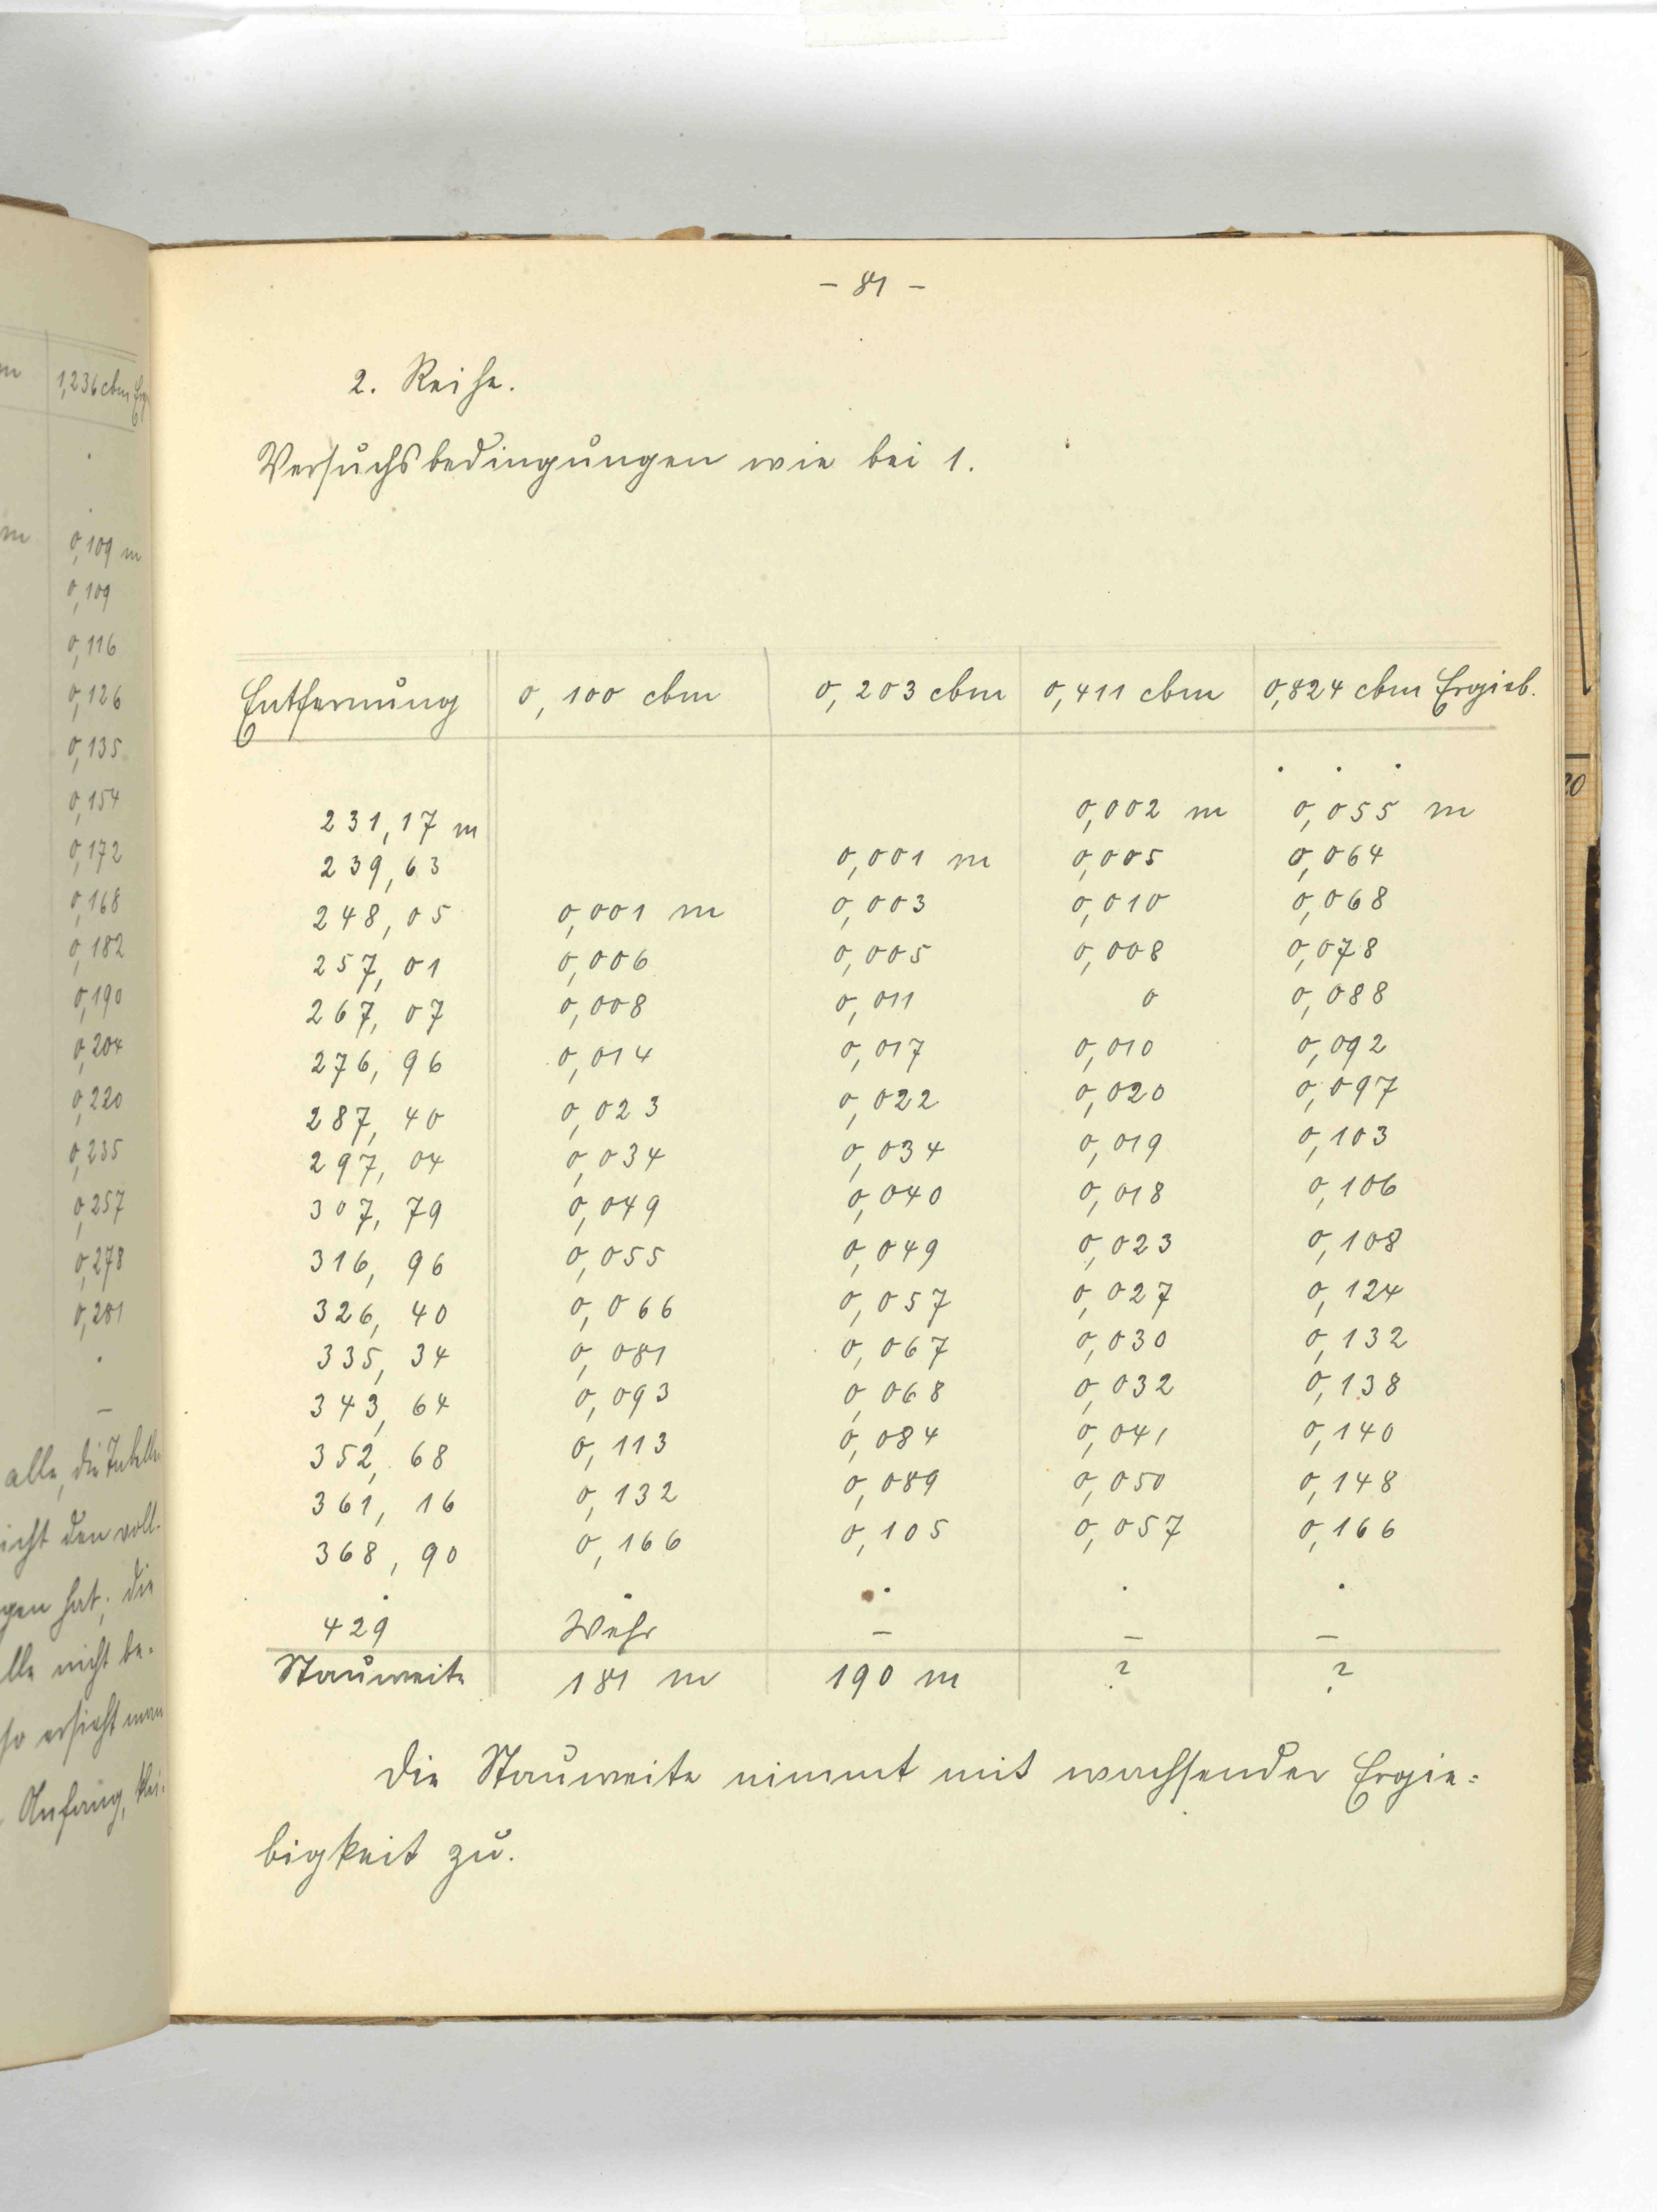 1,236 cbm Erg
0,109 m
0,109
0,116
0,126
0,135
0,154
0,172
0,168
0,182
0,190
0,204
0,220
0,235
0,257
0,278
0,281
alle, die Tabelle
icht den voll-
gen hat; die
lle nicht be-
so ersieht man
Anfang,
- 81 -
2. Reihe.
Versuchsbedingungen wie bei 1.
Entfernung 0,100 cbm 0,203 cbm 0,411 cbm 0,824 cbm Ergieb.
. . .
231,17 m 0,002 m 0,055 m
239,63 0,001 m 0,005 0,064
248,05 0,001 m 0,003 0,010 0,068
257,01 0,006 0,005 0,008 0,078
267,07 0,008 0,011 0 0,088
276,96 0,014 0,017 0,010 0,092
287,40 0,023 0,022 0,020 0,097
297,04 0,034 0,034 0,019 0,103
307,79 0,049 0,040 0,018 0,106
316,96 0,055 0,049 0,023 0,108
326,40 0,066 0,057 0,027 0,124
335,34 0,081 0,067 0,030 0,132
343,64 0,093 0,068 0,032 0,138
352,68 0,113 0,084 0,041 0,140
361,16 0,132 0,089 0,050 0,148
368,90 0,166 0,105 0,057 0,166
. . . . .
429 Wehr – – –
Stauweite 181 m 190 m ? ?
Die Stauweite nimmt mit wachsender Ergie-
bigkeit zu.
20